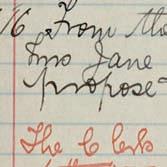 16 From the
Mrs Jane
propose
The Clerks